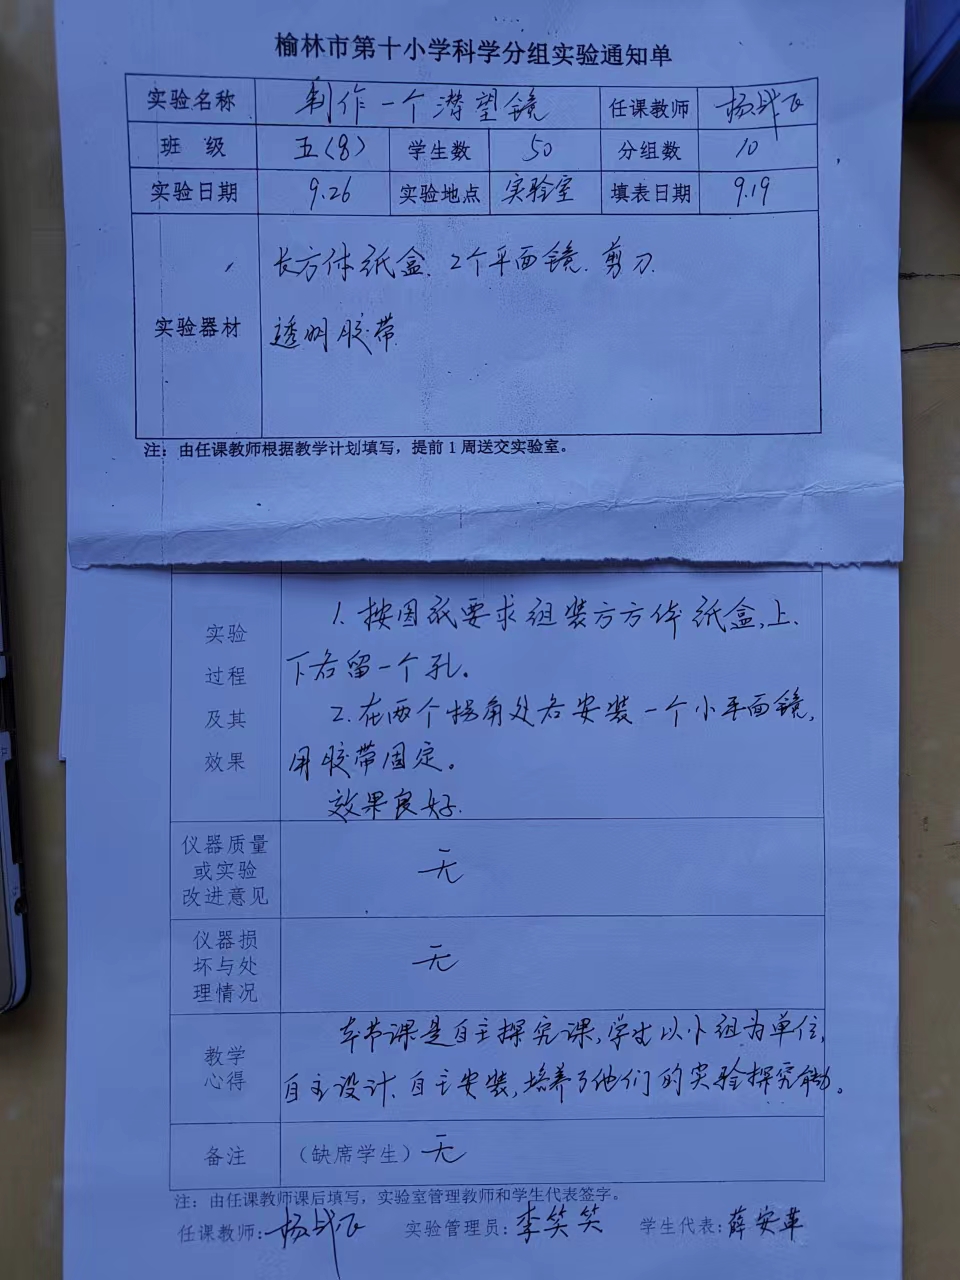 榆林市第十小学科学分组实验通知单
实验名称 制作一个潜望镜 任课教师 杨战飞
班 级 五(8) 学生数 50 分组数 10
实验日期 9.26 实验地点 实验室 填表日期 9.19
长方体纸盒、2个平面镜、剪刀、
实验器材
透明胶带
注：由任课教师根据教学计划填写，提前1周送交实验室。
实验
过程
及其
效果
1.按图纸要求组装方方体纸盒,上、
下各留一个孔。
2.在两个拐角处各安装一个小平面镜,
用胶带固定。
效果良好.
仪器质量
或实验
改进意见
无
仪器损
坏与处
理情况
无
教学
心得
本节课是自主探究课,学生以小组为单位,
自主设计、自主安装,培养了他们的实验探究能力。
备注 （缺席学生）无
注：由任课教师课后填写，实验室管理教师和学生代表签字。
任课教师:杨战飞 实验管理员:李笑笑 学生代表:薛安革